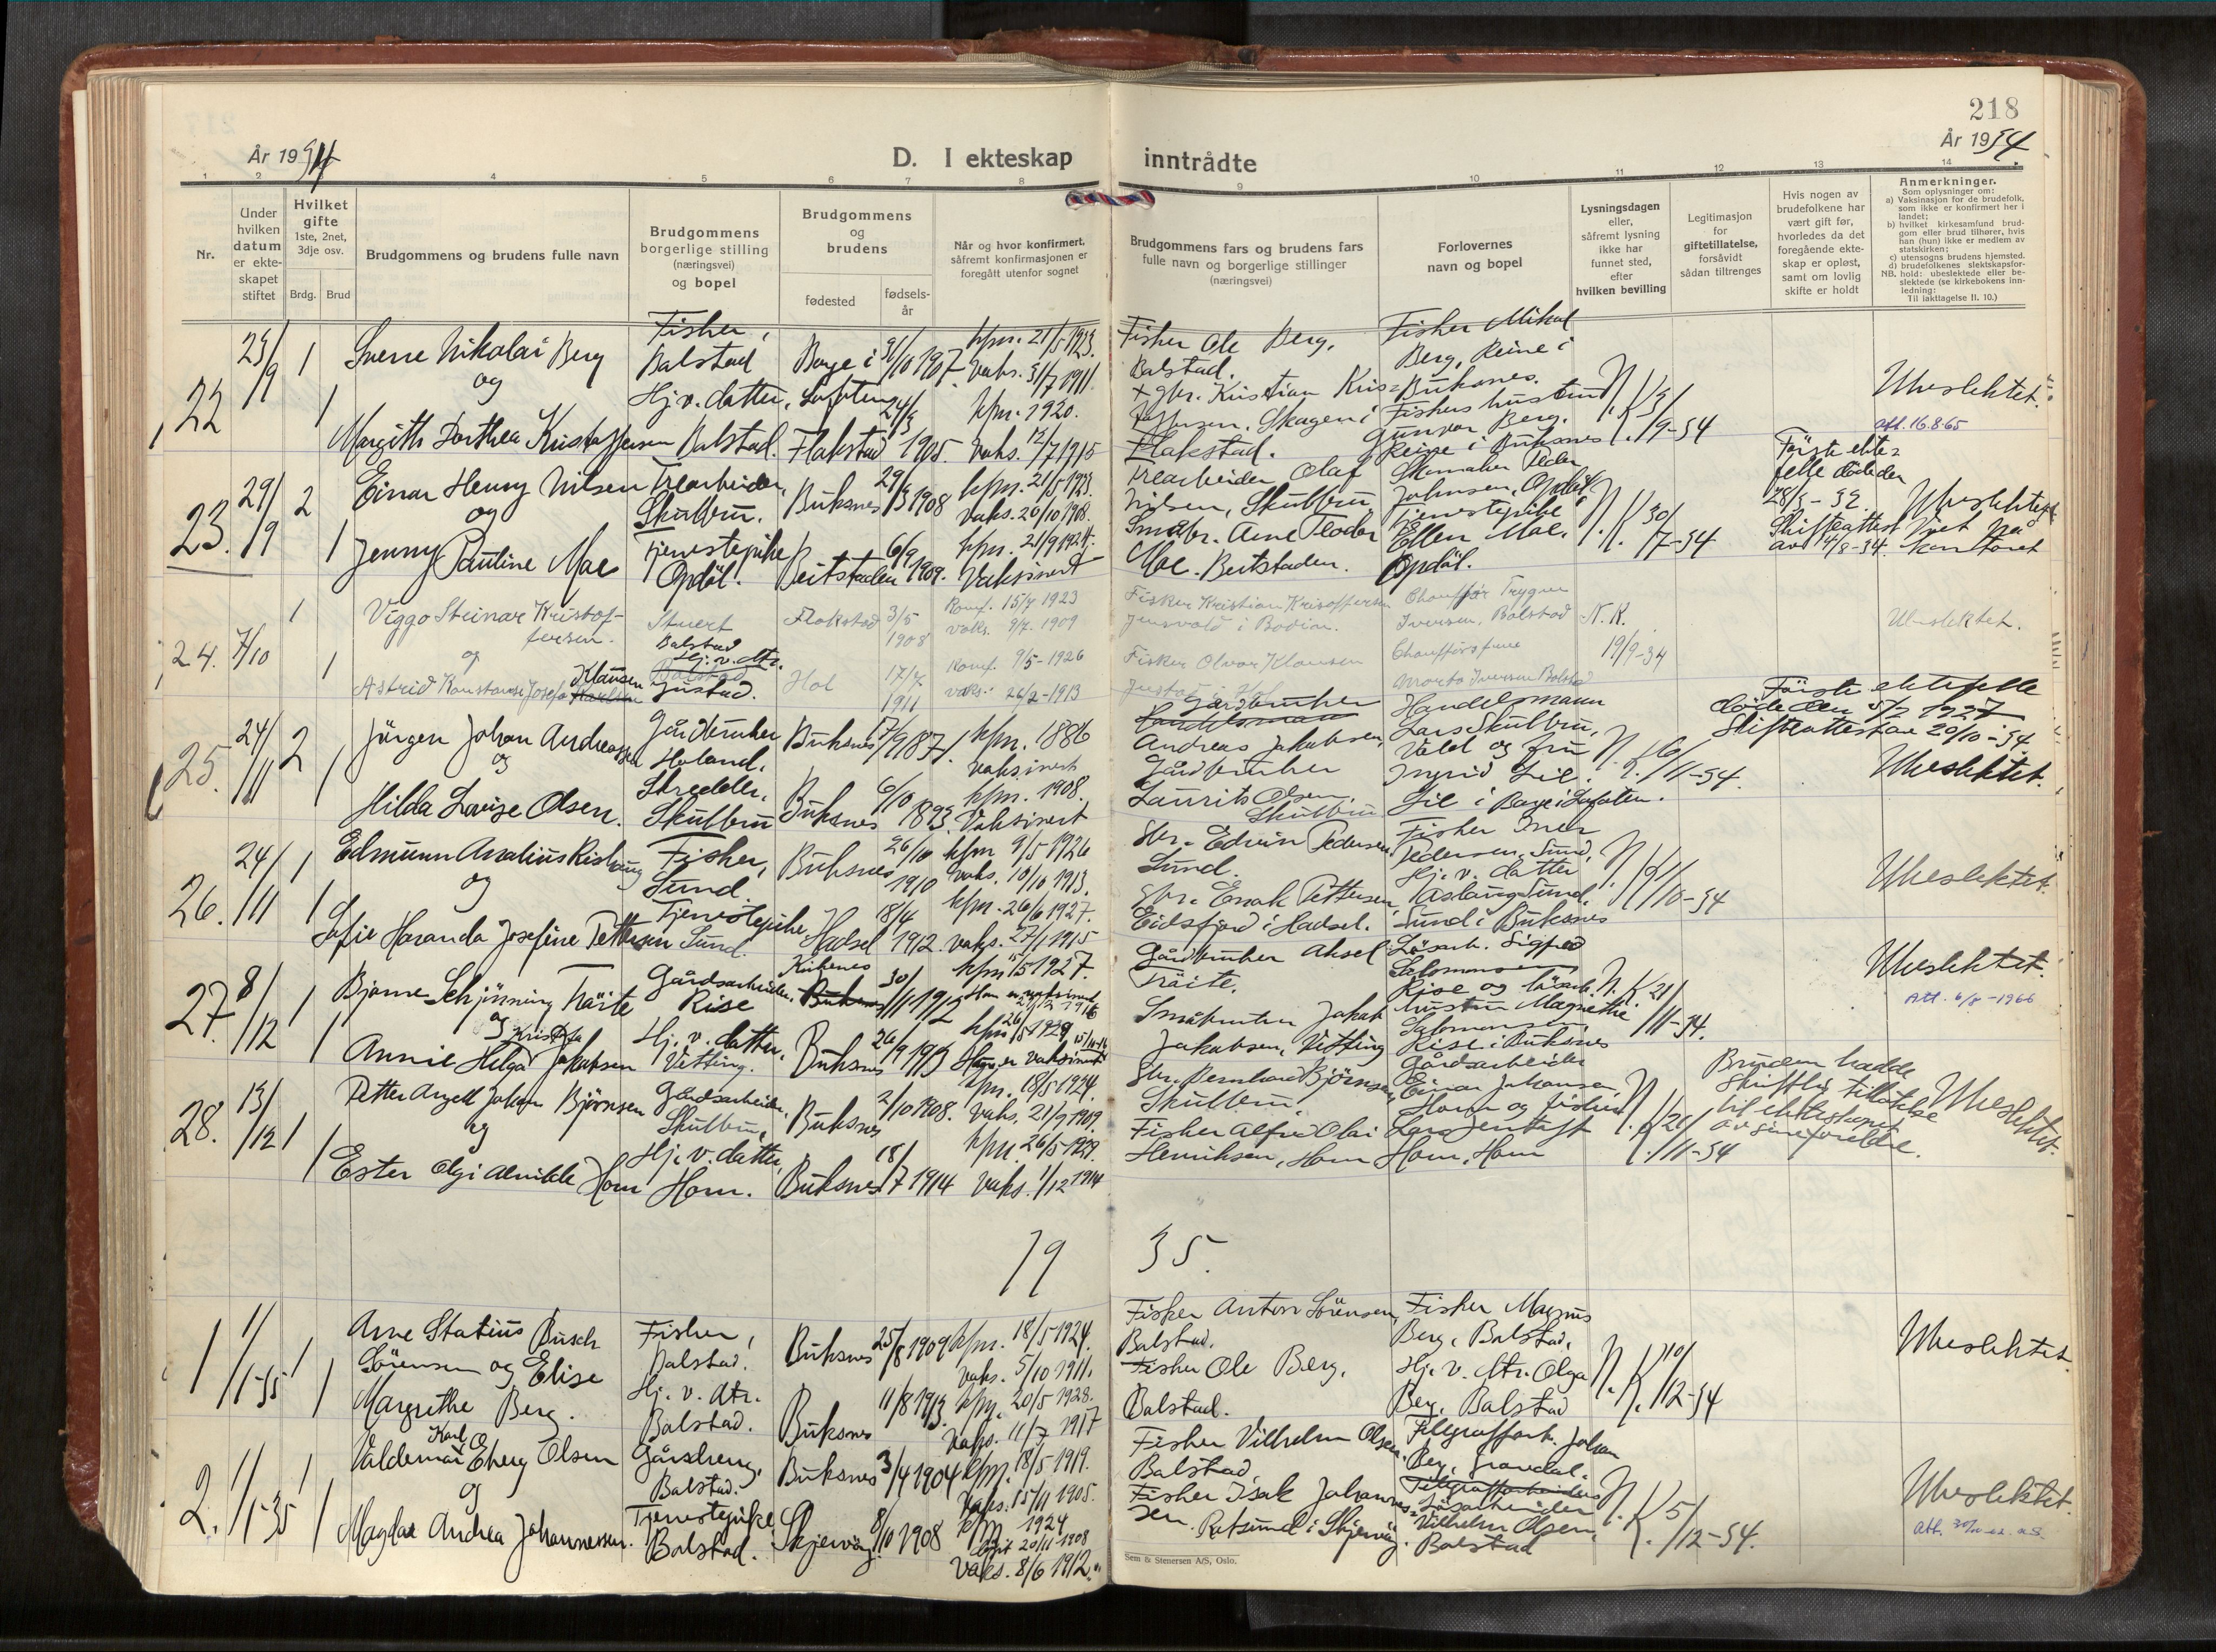 218
År 1934
D. I ekteskap inntrådte
År 1934
1 2 3 4 5 6 7 8 9 10 11 12 13 14
Nr.
Under hvilken datum er ekteskapet stiftet
Hvilket gifte 1ste, 2net, 3dje osv.
Brdg. Brud
Brudgommens og brudens fulle navn
Brudgommens borgerlige stilling (næringsvei) og bopel
Brudgommens og brudens
fødested
fødselsår
Når og hvor konfirmert, såfremt konfirmasjonen er foregått utenfor sognet
Brudgommens fars og brudens fars fulle navn og borgerlige stillinger (næringsvei)
Forlovernes navn og bopel
Lysningsdagen eller, såfremt lysning ikke har funnet sted, efter hvilken bevilling
Legitimasjon for giftetillatelse, forsåvidt sådan tiltrenges
Hvis nogen av brudefolkene har vært gift før, hvorledes da det foregående ekteskap er opløst, samt om lovlig skifte er holdt
Anmerkninger.
Som oplysninger om:
a) Vaksinasjon for de brudefolk, som ikke er konfirmert her i landet;
b) hvilket kirkesamfund brudgom eller brud tilhører, hvis han (hun) ikke er medlem av statskirken;
c) utensogns brudens hjemsted.
d) brudefolkenes slektskapsforhold: ubeslektede eller beslektede (se kirkebokens innledning:
NB.
Til iakttagelse II. 10.)
22 23/9 1 Sverre Nikolai Berg Fisker, Balstad Borge i Lofoten 31/10 1907 kfm. 21/5 1923. vaks. 31/7 1911.
og
1 Margith Dorthea Kristoffersen Hj.v. datter, Balstad. Flakstad 24/3 1905. kfm. 1920. Vaks. 12/7 1915
Fisker Ole Berg, Balstad.
+ gbr. Kristian Kristoffersen, Skagen i Flakstad.
Fisker Mikal Berg, Reine i Buksnes.
Fiskers hustru Gunvor Berg. Reine i Buksnes
N.K. 3/9-34
Ubeslektet.
att. 16.8.65
23. 29/9 2 Einar Henry Nilsen Trearbeider, Skulbru. Buksnes 29/3 1908 kfm. 21/5 1923. Vaks. 26/10 1908.
og
1 Jenny Pauline Moe Tjenestepike Opdöl. Beitstaden 6/9 1909. kfm. 21/9 1924. Vaksinert
Trearbeider Olaf Nilsen, Skulbru
Småbr. Arne Moe. Beitstaden.
Skomaker Peder Johnsen, Opdöl
Tjenestepike Ellen Moe. Opdöl.
N.K. 30/7-34
Förste ektefelle döde den 28/3-32. Skifteattest av 4/8-34.
Ubeslektet
24. 7/10 1 Viggo Steinar Kristoffersen. Stuert Balstad Flakstad 3/5 1908 Konf. 15/7 1923 vaks. 9/7. 1909
og
1 Astrid Konstanse Josefa Klausen Hj.v.dtr. Justad. Hol 17/7 1911 Konf. 9/5-1926 vaks. 26/2-1913
Fisker Kristian Kristoffersen
Fisker Olvar Klausen Justad
Chauffør Trygve Iversen, Balstad
Chaufførsfrue Marta Iversen Balstad
N.K. 19/9-34
Ubeslektet.
25. 24/11 2 Jörgen Johan Andreassen Gårdbruker Holand. Buksnes 17/9 1871. kfm. 1886 Vaksinert
og
1 Hilda Lovise Olsen. Skredder, Skulbru Buksnes 6/10 1893. kfm. 1908. Vaksinert
Gårdbruker Andreas Jakobsen,
Gårdbruker Laurits Olsen, Skulbru
Handelsmann Lars Skulbru, Vold og fru Ingrid Lie. Lie i Borge i Lofoten.
N.K. 6/11-34.
Förste ektefelle döde den 5/2 1927. Skifteattest av 20/10-34
Ubeslektet.
26. 24/11 1 Edmunn Analius Risberg Fisker, Sund. Buksnes 26/10 1910 kfm 9/5 1926 Vaks. 10/10 1913.
og
1 Sofie Haranda Josefine Pettersen Tjenestepike Sund. Hadsel 18/4 1912. kfm. 26/6 1927. vaks. 27/1 1915
Gbr. Edvin Pedersen Sund.
Gbr. Enok Pettersen, Eidsfjord i Hadsel.
Fisker Iver Pedersen, Sund,
Hj. v. datter Aslaug Sund, Sund i Buksnes
N.K. 9/10-34
Ubeslektet.
27. 8/12 1 Bjarne Schjönning Träite Gårdsarbeider, Rise Kirkenes 30/11 1912 kfm 15/5 1927. Han er vaksinert
og
1 Annie Helga Kristofa Jakobsen Hj. v. datter, Vetting. Buksnes 26/9 1913 kfm 26/5 1929 Hun er vaksinert
Gårdbruker Aksel Träite.
Småbruker Jakob Jakobsen, Vetting
Lösarb. Sigfred Salomonsen Rise og lösarb. hustru Magnethe Salomonsen Rise i Buksnes
N.K. 21/11-34.
Ubeslektet.
Att. 6/8-1966
28. 13/12 1 Petter Angell Johan Björnsen Gårdsarbeider, Skulbru, Buksnes 2/10 1908. kfm. 18/5 1924. Vaks. 21/9 1909.
og
1 Ester Olgi Alvilde Horn Hj. v. datter, Horn. Buksnes 18/7 1914 kfm. 26/5 1929. Vaks. 1/12 1914
Gbr. Bernhard Björnsen, Skulbru,
Fisker Alfred Olai Henriksen, Horn
Gårdsarbeider Einar Johansen, Horn og fisker Lars Jentoft Horn, Horn
N.K. 26/11-34
Bruden hadde skriftlig tillatelse til ekteskapet av sine foreldre.
Ubeslektet.
19 35.
1 1/1-35 1 Arne Statius Busch Sörensen og Fisker, Balstad. Buksnes 25/8 1909 kfm. 18/5 1924. Vaks. 5/10 1911.
1 Elise Margrethe Berg. Hj. v. dtr. Balstad. Buksnes 11/8 1913. kfm. 20/5 1928. Vaks. 11/7 1917
Fisker Anton Sörensen, Balstad.
Fisker Ole Berg, Balstad.
Fisker Magnus Berg, Balstad,
Hj. v. dtr. Olga Berg, Balstad
N.K. 10/12-34
Ubeslektet.
2. 1/1-35 1 Valdemar Karl Eberg Olsen Gårdsdreng, Balstad. Buksnes 3/4 1904 kfm. 18/5 1919. Vaks. 15/11 1905.
og
1 Magda Andrea Johannessen. Tjenestepike Balstad. Skjervöy 8/10 1908 kfm 1924 Vaks. 8/6 1912.
Fisker Vilhelm Olsen, Balstad
Fisker Isak Johannessen. Rotsund i Skjervöy.
Telegrafarb. Johan Berg, Gravdal.
Lösarbeider Vilhelm Olsen, Balstad
N.K. 5/12-34.
Ubeslektet.
Sem & Stenersen A/S, Oslo.